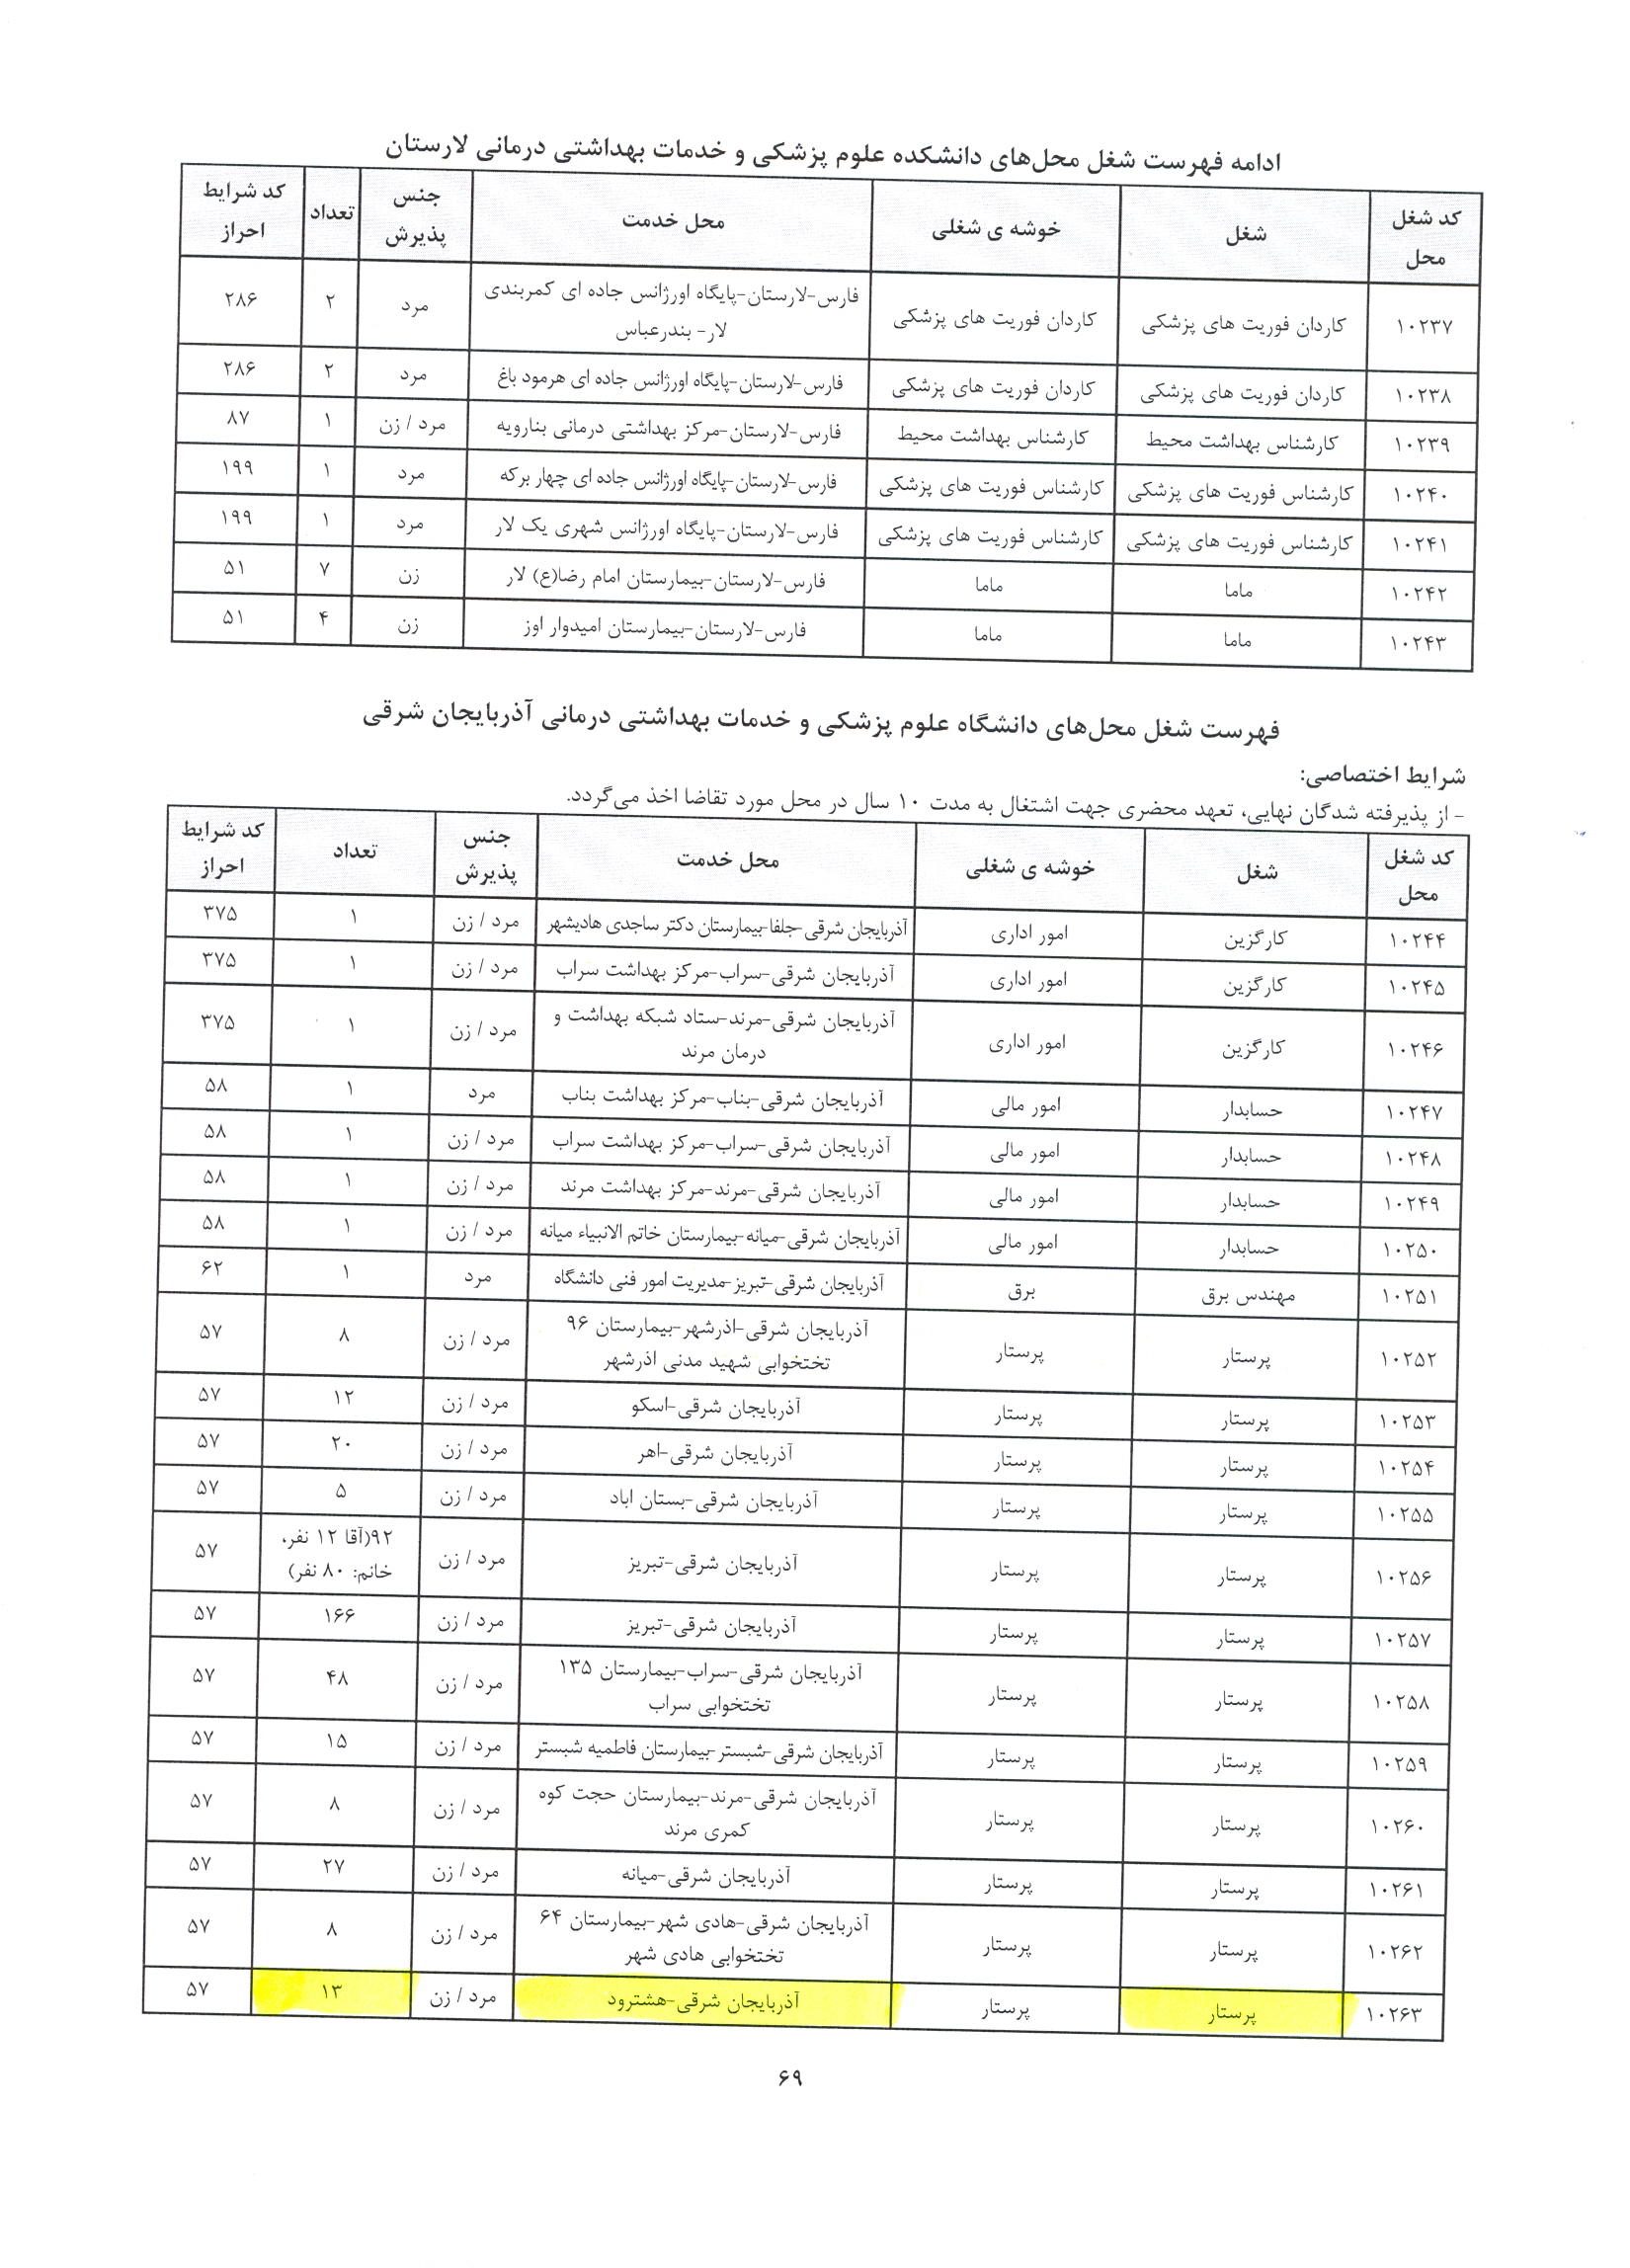 ادامه فهرست شغل محل‌های دانشکده علوم پزشکی و خدمات بهداشتی درمانی لارستان
کد شغل محل | شغل | خوشه ی شغلی | محل خدمت | جنس پذیرش | تعداد | کد شرایط احراز
۱۰۲۳۷ | کاردان فوریت های پزشکی | کاردان فوریت های پزشکی | فارس-لارستان-پایگاه اورژانس جاده ای کمربندی لار- بندرعباس | مرد | ۲ | ۲۸۶
۱۰۲۳۸ | کاردان فوریت های پزشکی | کاردان فوریت های پزشکی | فارس-لارستان-پایگاه اورژانس جاده ای هرمود باغ | مرد | ۲ | ۲۸۶
۱۰۲۳۹ | کارشناس بهداشت محیط | کارشناس بهداشت محیط | فارس-لارستان-مرکز بهداشتی درمانی بنارویه | مرد / زن | ۱ | ۸۷
۱۰۲۴۰ | کارشناس فوریت های پزشکی | کارشناس فوریت های پزشکی | فارس-لارستان-پایگاه اورژانس جاده ای چهار برکه | مرد | ۱ | ۱۹۹
۱۰۲۴۱ | کارشناس فوریت های پزشکی | کارشناس فوریت های پزشکی | فارس-لارستان-پایگاه اورژانس شهری یک لار | مرد | ۱ | ۱۹۹
۱۰۲۴۲ | ماما | ماما | فارس-لارستان-بیمارستان امام رضا(ع) لار | زن | ۷ | ۵۱
۱۰۲۴۳ | ماما | ماما | فارس-لارستان-بیمارستان امیدوار اوز | زن | ۴ | ۵۱
فهرست شغل محل‌های دانشگاه علوم پزشکی و خدمات بهداشتی درمانی آذربایجان شرقی
شرایط اختصاصی:
- از پذیرفته شدگان نهایی، تعهد محضری جهت اشتغال به مدت ۱۰ سال در محل مورد تقاضا اخذ می‌گردد.
کد شغل محل | شغل | خوشه ی شغلی | محل خدمت | جنس پذیرش | تعداد | کد شرایط احراز
۱۰۲۴۴ | کارگزین | امور اداری | آذربایجان شرقی-جلفا-بیمارستان دکتر ساجدی هادیشهر | مرد / زن | ۱ | ۳۷۵
۱۰۲۴۵ | کارگزین | امور اداری | آذربایجان شرقی-سراب-مرکز بهداشت سراب | مرد / زن | ۱ | ۳۷۵
۱۰۲۴۶ | کارگزین | امور اداری | آذربایجان شرقی-مرند-ستاد شبکه بهداشت و درمان مرند | مرد / زن | ۱ | ۳۷۵
۱۰۲۴۷ | حسابدار | امور مالی | آذربایجان شرقی-بناب-مرکز بهداشت بناب | مرد | ۱ | ۵۸
۱۰۲۴۸ | حسابدار | امور مالی | آذربایجان شرقی-سراب-مرکز بهداشت سراب | مرد / زن | ۱ | ۵۸
۱۰۲۴۹ | حسابدار | امور مالی | آذربایجان شرقی-مرند-مرکز بهداشت مرند | مرد / زن | ۱ | ۵۸
۱۰۲۵۰ | حسابدار | امور مالی | آذربایجان شرقی-میانه-بیمارستان خاتم الانبیاء میانه | مرد / زن | ۱ | ۵۸
۱۰۲۵۱ | مهندس برق | برق | آذربایجان شرقی-تبریز-مدیریت امور فنی دانشگاه | مرد | ۱ | ۶۲
۱۰۲۵۲ | پرستار | پرستار | آذربایجان شرقی-اذرشهر-بیمارستان ۹۶ تختخوابی شهید مدنی اذرشهر | مرد / زن | ۸ | ۵۷
۱۰۲۵۳ | پرستار | پرستار | آذربایجان شرقی-اسکو | مرد / زن | ۱۲ | ۵۷
۱۰۲۵۴ | پرستار | پرستار | آذربایجان شرقی-اهر | مرد / زن | ۲۰ | ۵۷
۱۰۲۵۵ | پرستار | پرستار | آذربایجان شرقی-بستان اباد | مرد / زن | ۵ | ۵۷
۱۰۲۵۶ | پرستار | پرستار | آذربایجان شرقی-تبریز | مرد / زن | ۹۲(آقا ۱۲ نفر، خانم: ۸۰ نفر) | ۵۷
۱۰۲۵۷ | پرستار | پرستار | آذربایجان شرقی-تبریز | مرد / زن | ۱۶۶ | ۵۷
۱۰۲۵۸ | پرستار | پرستار | آذربایجان شرقی-سراب-بیمارستان ۱۳۵ تختخوابی سراب | مرد / زن | ۴۸ | ۵۷
۱۰۲۵۹ | پرستار | پرستار | آذربایجان شرقی-شبستر-بیمارستان فاطمیه شبستر | مرد / زن | ۱۵ | ۵۷
۱۰۲۶۰ | پرستار | پرستار | آذربایجان شرقی-مرند-بیمارستان حجت کوه کمری مرند | مرد / زن | ۸ | ۵۷
۱۰۲۶۱ | پرستار | پرستار | آذربایجان شرقی-میانه | مرد / زن | ۲۷ | ۵۷
۱۰۲۶۲ | پرستار | پرستار | آذربایجان شرقی-هادی شهر-بیمارستان ۶۴ تختخوابی هادی شهر | مرد / زن | ۸ | ۵۷
۱۰۲۶۳ | پرستار | پرستار | آذربایجان شرقی-هشترود | مرد / زن | ۱۳ | ۵۷
۶۹